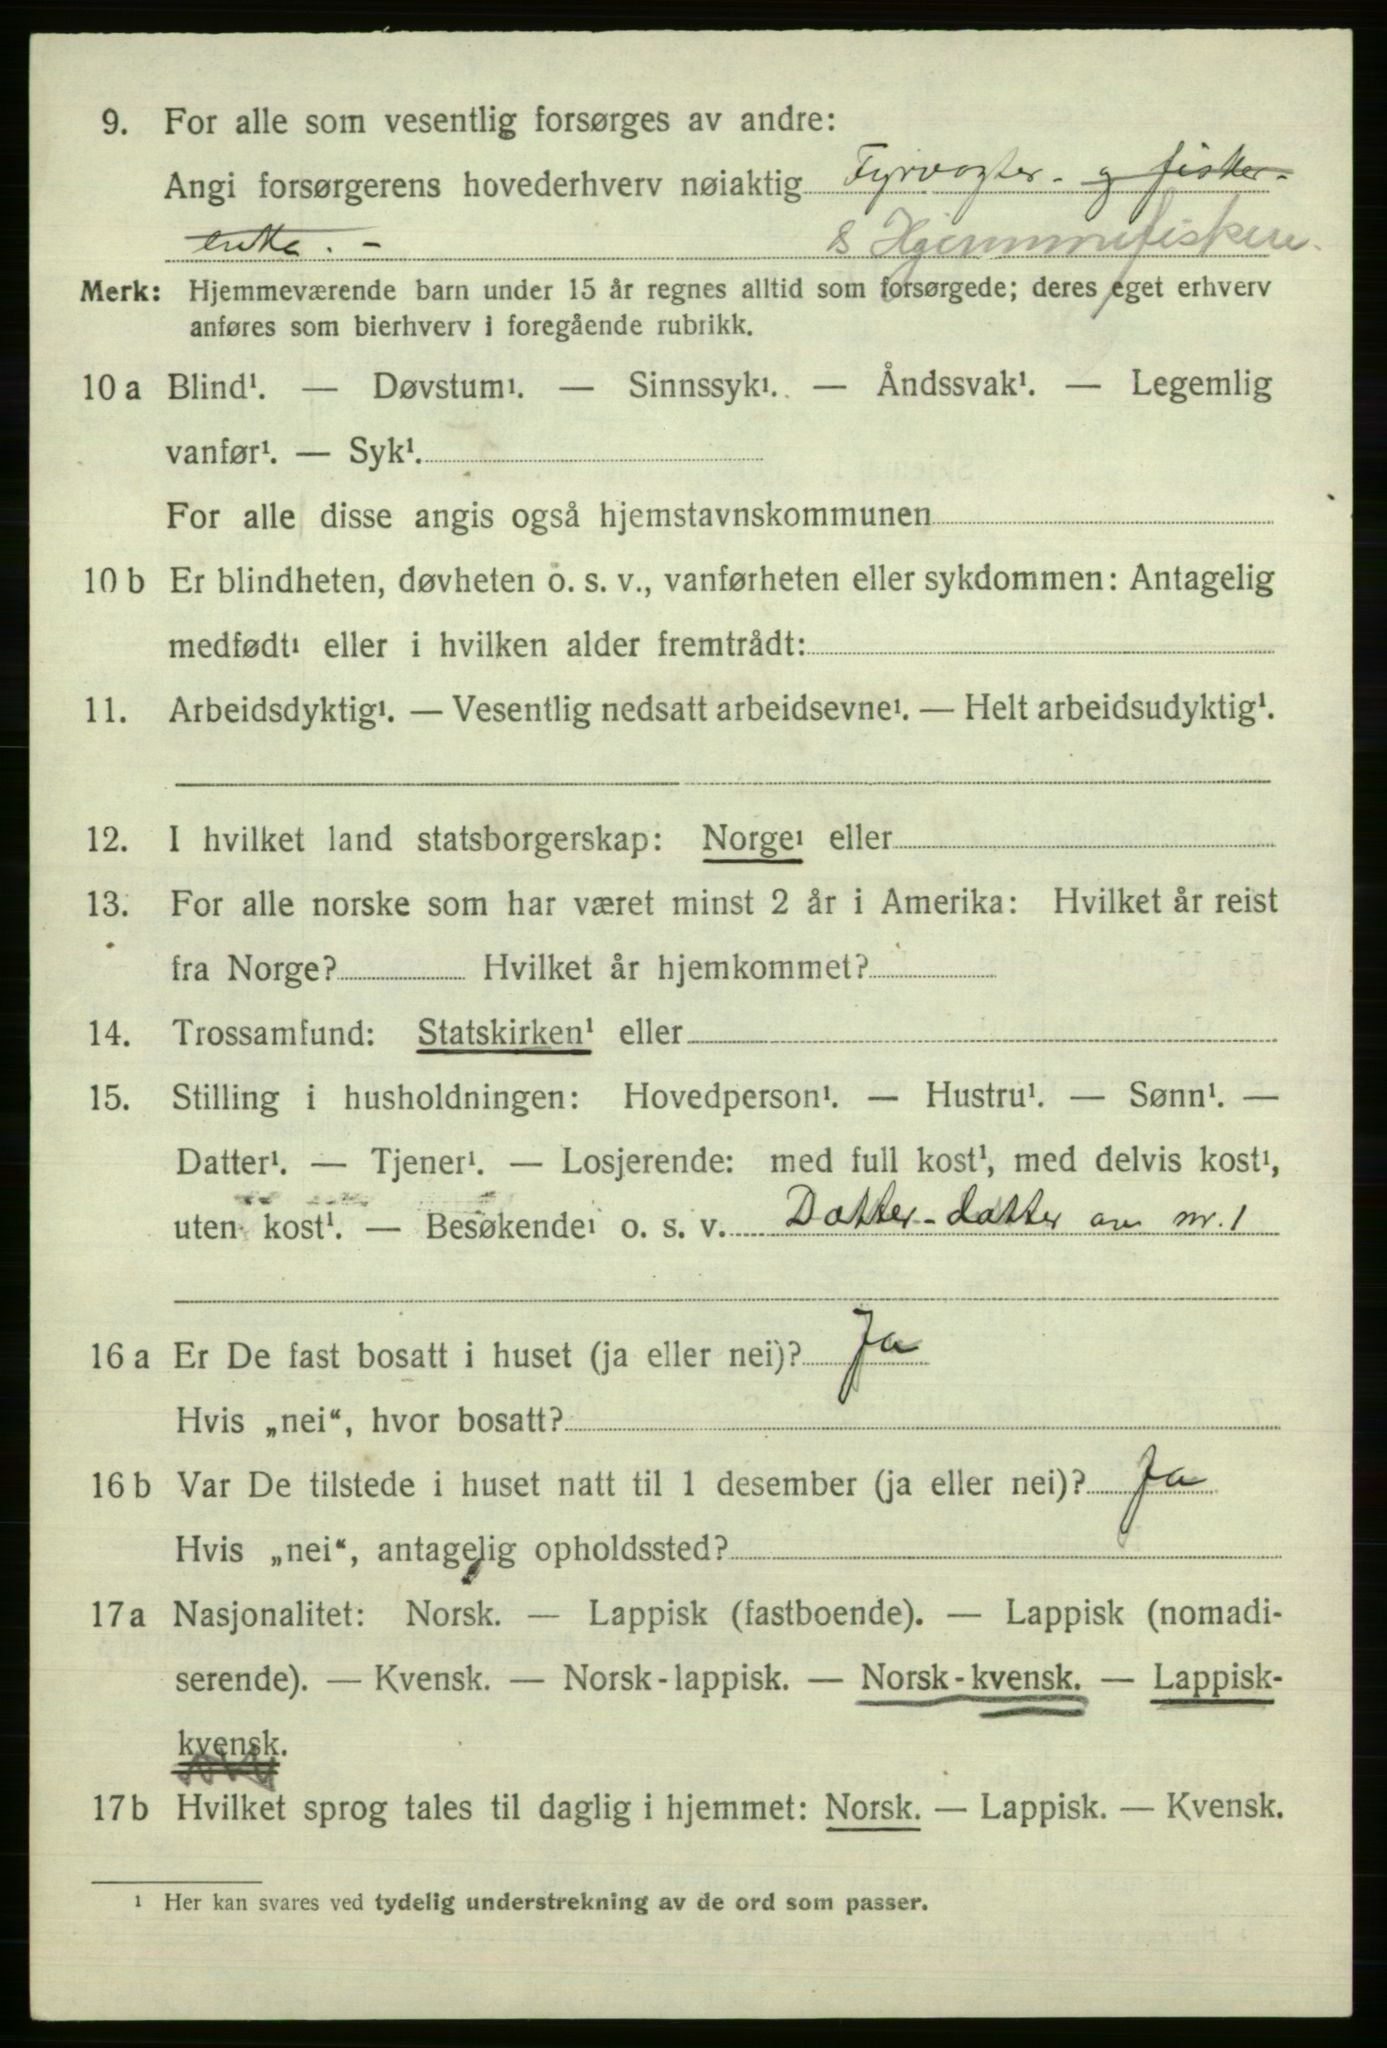 9. For alle som vesentlig forsørges av andre:
Angi forsørgerens hovederhverv nøiaktig Fyrvogter. og fisker-
enke. -
& Hjemmefisker
Merk: Hjemmeværende barn under 15 år regnes alltid som forsørgede; deres eget erhverv
anføres som bierhverv i foregående rubrikk.
10 a Blind¹. — Døvstum¹. — Sinnssyk¹. — Åndssvak¹. — Legemlig
vanfør¹. — Syk¹.
For alle disse angis også hjemstavnskommunen
10 b Er blindheten, døvheten o. s. v., vanførheten eller sykdommen: Antagelig
medfødt¹ eller i hvilken alder fremtrådt:
11. Arbeidsdyktig¹. — Vesentlig nedsatt arbeidsevne¹. — Helt arbeidsudyktig¹.
12. I hvilket land statsborgerskap: Norge¹ eller
13. For alle norske som har været minst 2 år i Amerika: Hvilket år reist
fra Norge? Hvilket år hjemkommet?
14. Trossamfund: Statskirken¹ eller
15. Stilling i husholdningen: Hovedperson¹. — Hustru¹. — Sønn¹. —
Datter¹. — Tjener¹. — Losjerende: med full kost¹, med delvis kost¹,
uten kost¹. — Besøkende¹ o. s. v. Datter-datter av nr. 1
16 a Er De fast bosatt i huset (ja eller nei)? Ja
Hvis „nei“, hvor bosatt?
16 b Var De tilstede i huset natt til 1 desember (ja eller nei)? Ja
Hvis „nei“, antagelig opholdssted?
17 a Nasjonalitet: Norsk. — Lappisk (fastboende). — Lappisk (nomadi-
serende). — Kvensk. — Norsk-lappisk. — Norsk-kvensk. — Lappisk-
kvensk.
17 b Hvilket sprog tales til daglig i hjemmet: Norsk. — Lappisk. — Kvensk.
¹ Her kan svares ved tydelig understrekning av de ord som passer.